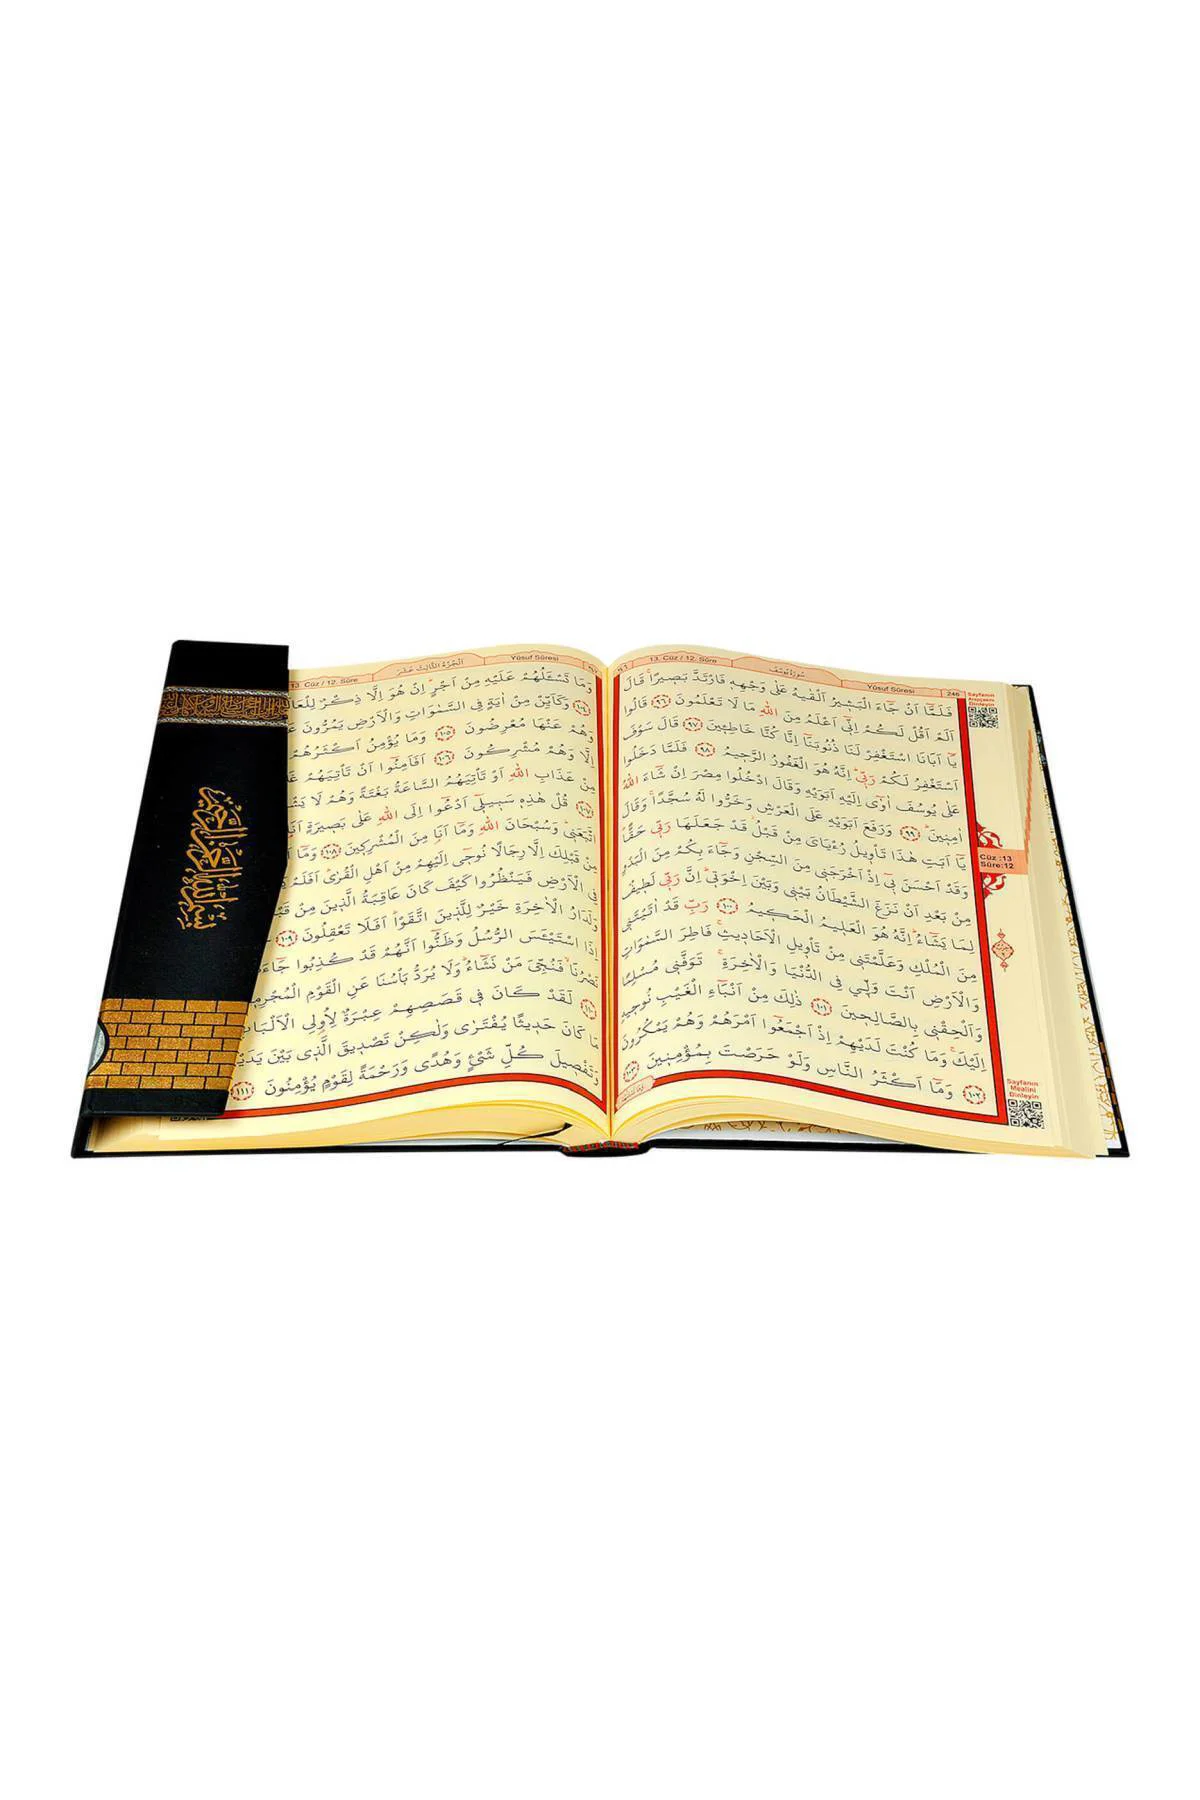 246
Yûsuf Sûresi
سُورَةُ يُوسُفَ
13. Cüz / 12. Sûre
Sayfanın
Arapçasını
Dinleyin
فَلَمَّٓا اَنْ جَٓاءَ الْبَش۪يرُ اَلْقٰيهُ عَلٰى وَجْهِه۪ فَارْتَدَّ بَص۪يراًۚ قَالَ
اَلَمْ اَقُلْ لَكُمْ اِنّ۪ٓي اَعْلَمُ مِنَ اللّٰهِ مَا لَا تَعْلَمُونَ ﴿٩٦﴾ قَالُوا
يَٓا اَبَانَا اسْتَغْفِرْ لَنَا ذُنُوبَنَٓا اِنَّا كُنَّا خَاطِـ۪ٔينَ ﴿٩٧﴾ قَالَ سَوْفَ
اَسْتَغْفِرُ لَكُمْ رَبّ۪ي اِنَّهُ هُوَ الْغَفُورُ الرَّح۪يمُ ﴿٩٨﴾ فَلَمَّا دَخَلُوا
عَلٰى يُوسُفَ اٰوٰٓى اِلَيْهِ اَبَوَيْهِ وَقَالَ ادْخُلُوا مِصْرَ اِنْ شَٓاءَ اللّٰهُ
اٰمِن۪ينَ ﴿٩٩﴾ وَرَفَعَ اَبَوَيْهِ عَلَى الْعَرْشِ وَخَرُّوا لَهُ سُجَّداًۚ وَقَالَ
يَٓا اَبَتِ هٰذَا تَأْو۪يلُ رُءْيَايَ مِنْ قَبْلُ قَدْ جَعَلَهَا رَبّ۪ي حَقاًّ
وَقَدْ اَحْسَنَ ب۪ٓي اِذْ اَخْرَجَن۪ي مِنَ السِّجْنِ وَجَٓاءَ بِكُمْ مِنَ الْبَدْوِ
مِنْ بَعْدِ اَنْ نَزَغَ الشَّيْطَانُ بَيْن۪ي وَبَيْنَ اِخْوَت۪ي اِنَّ رَبّ۪ي لَط۪يفٌ
لِمَا يَشَٓاءُ اِنَّهُ هُوَ الْعَل۪يمُ الْحَك۪يمُ ﴿١٠٠﴾ رَبِّ قَدْ اٰتَيْتَن۪ي
مِنَ الْمُلْكِ وَعَلَّمْتَن۪ي مِنْ تَأْو۪يلِ الْاَحَاد۪يثِۚ فَاطِرَ السَّمٰوَاتِ
وَالْاَرْضِ اَنْتَ وَلِيّ۪ فِي الدُّنْيَا وَالْاٰخِرَةِۚ تَوَفَّن۪ي مُسْلِماً
وَاَلْحِقْن۪ي بِالصَّالِح۪ينَ ﴿١٠١﴾ ذٰلِكَ مِنْ اَنْبَٓاءِ الْغَيْبِ نُوح۪يهِ
اِلَيْكَۚ وَمَا كُنْتَ لَدَيْهِمْ اِذْ اَجْمَعُٓوا اَمْرَهُمْ وَهُمْ يَمْكُرُونَ
﴿١٠٢﴾ وَمَٓا اَكْثَرُ النَّاسِ وَلَوْ حَرَصْتَ بِمُؤْمِن۪ينَ ﴿١٠٣﴾
Cüz :13
Sûre:12
Sayfanın
Mealini
Dinleyin
Yûsuf Sûresi
اَلْجُزْءُ الثَّالِثَ عَشَرَ
13. Cüz / 12. Sûre
وَمَا تَسْـَٔلُهُمْ عَلَيْهِ مِنْ اَجْرٍ اِنْ هُوَ اِلَّا ذِكْرٌ لِلْعَالَ
﴿١٠٤﴾ وَكَاَيِّنْ مِنْ اٰيَةٍ فِي السَّمٰوَاتِ وَالْاَرْضِ يَمُرُّونَ عَ
وَهُمْ عَنْهَا مُعْرِضُونَ ﴿١٠٥﴾ وَمَا يُؤْمِنُ اَكْثَرُهُمْ
اِلَّا وَهُمْ مُشْرِكُونَ ﴿١٠٦﴾ اَفَاَمِنُٓوا اَنْ تَأْتِيَهُمْ غَ
مِنْ عَذَابِ اللّٰهِ اَوْ تَأْتِيَهُمُ السَّاعَةُ بَغْتَةً وَهُمْ لَا يَشْ
﴿١٠٧﴾ قُلْ هٰذِه۪ سَب۪يل۪ٓي اَدْعُٓوا اِلَى اللّٰهِ عَلٰى بَص۪يرَةٍ اَنَا
اتَّبَعَن۪ي وَسُبْحَانَ اللّٰهِ وَمَٓا اَنَا۬ مِنَ الْمُشْرِك۪ينَ ﴿١٠٨﴾ وَمَٓا اَ
مِنْ قَبْلِكَ اِلَّا رِجَالاً نُوح۪ٓي اِلَيْهِمْ مِنْ اَهْلِ الْقُرٰى اَفَلَمْ
فِي الْاَرْضِ فَيَنْظُرُوا كَيْفَ كَانَ عَاقِبَةُ الَّذ۪ينَ مِنْ قَبْ
وَلَدَارُ الْاٰخِرَةِ خَيْرٌ لِلَّذ۪ينَ اتَّقَوْا اَفَلَا تَعْقِلُونَ ﴿١٠٩﴾
اِذَا اسْتَيْـَٔسَ الرُّسُلُ وَظَنُّٓوا اَنَّهُمْ قَدْ كُذِبُوا جَٓاءَ
نَصْرُنَا فَنُجِّيَ مَنْ نَشَٓاءُ وَلَا يُرَدُّ بَأْسُنَا عَنِ الْقَوْمِ الْمُجْرِم۪
﴿١١٠﴾ لَقَدْ كَانَ ف۪ي قَصَصِهِمْ عِبْرَةٌ لِاُو۬لِي الْاَلْبَا
مَا كَانَ حَد۪يثاً يُفْتَرٰى وَلٰكِنْ تَصْد۪يقَ الَّذ۪ي بَيْنَ يَدَيْ
وَتَفْص۪يلَ كُلِّ شَيْءٍ وَهُدًى وَرَحْمَةً لِقَوْمٍ يُؤْمِنُونَ ﴿١١١﴾
بسم الله الرحمن الرحيم